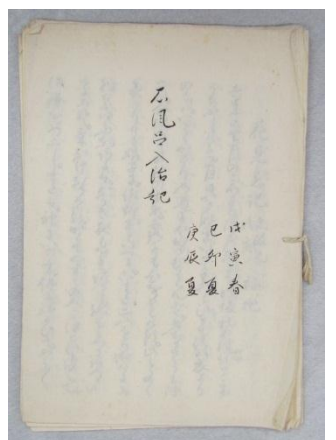 戊寅春
己卯夏
庚辰夏
石風呂入治記